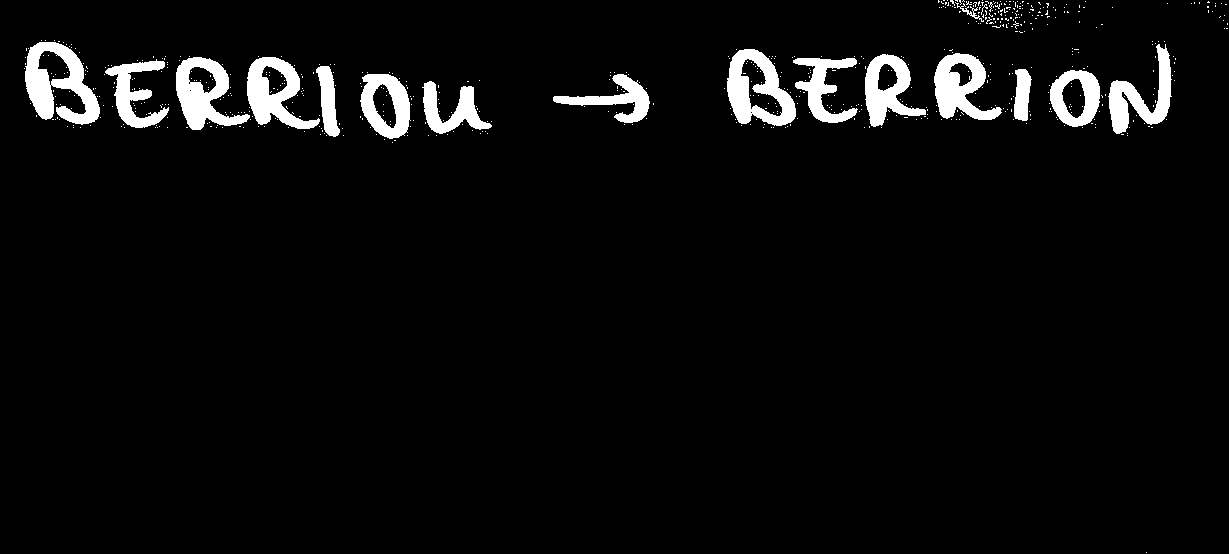 BERRIOU → BERRION